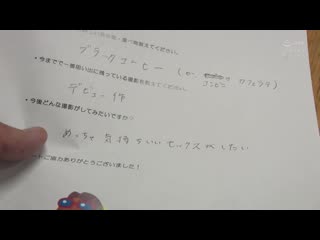 食べ物教えてください。
ブラックコーヒー (か、コンビニのカフェラテ)
・今までで一番思い出に残っている撮影を教えてください。
デビュー作
・今後どんな撮影がしてみたいですか？
めっちゃ気持ちいいセックスがしたい
ートにご協力ありがとうございました！